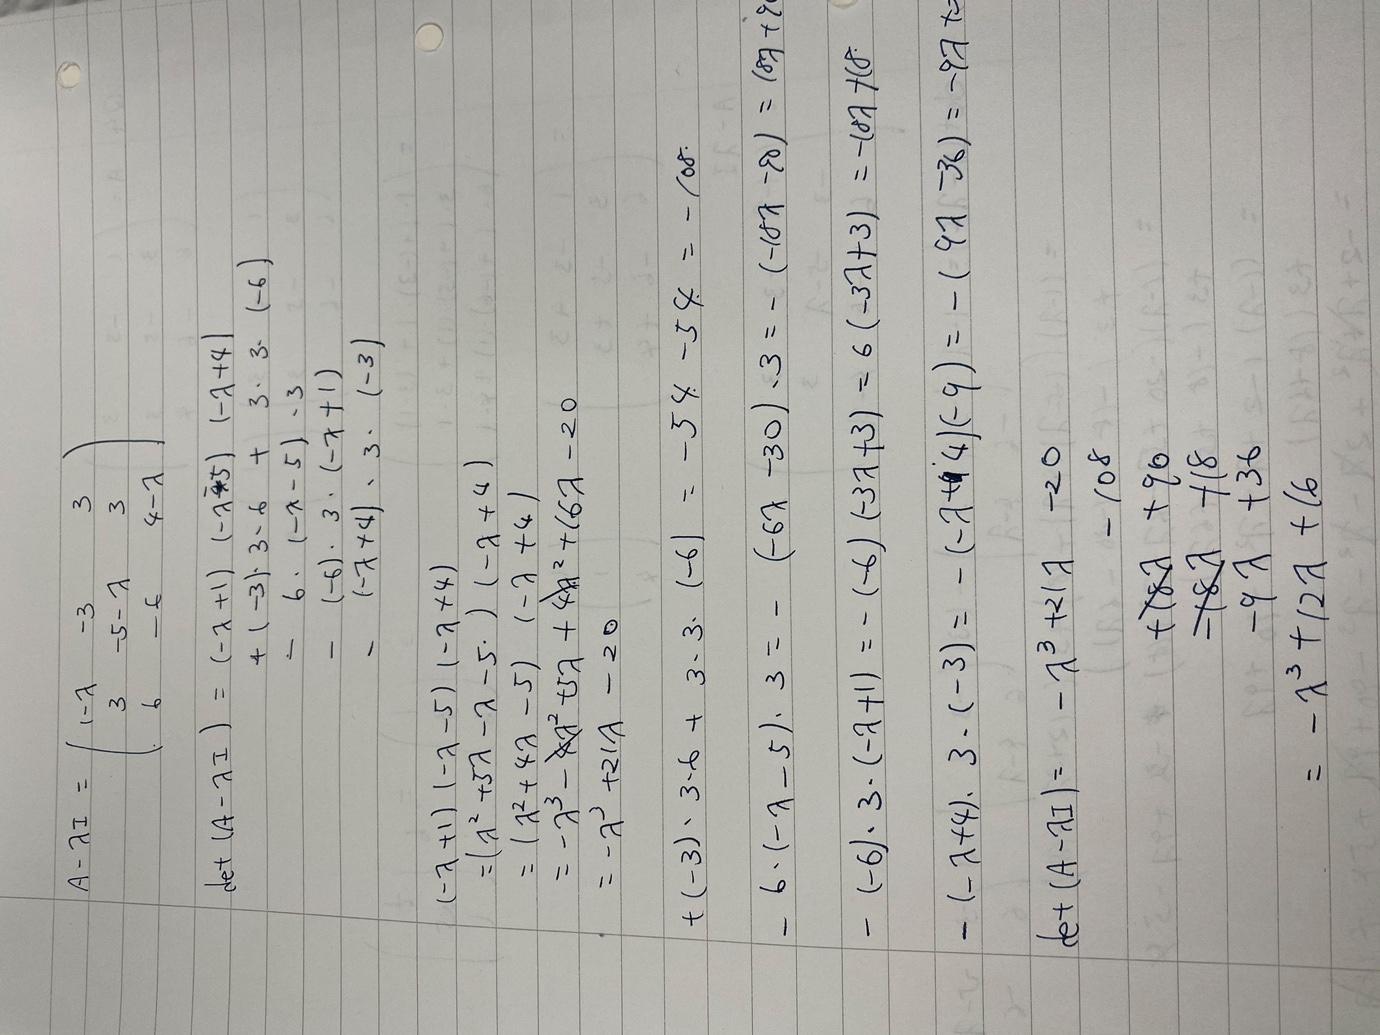 A - λI = ( 1-λ -3 3
3 -5-λ 3
6 -6 4-λ )
det (A - λI) = (-λ+1) (-λ-5) (-λ+4)
+ (-3)·3·6 + 3·3·(-6)
- 6·(-λ-5)·3
- (-6)·3·(-λ+1)
- (-λ+4)·3·(-3)
(-λ+1)(-λ-5)(-λ+4)
=(λ²+5λ-λ-5·)(-λ+4)
=(λ²+4λ-5)(-λ+4)
= -λ³-4λ²+5λ+4λ²+16λ-20
= -λ³+21λ-20
+(-3)·3·6 + 3·3·(-6) = -54-54 = -108.
- 6·(-λ-5)·3 = - (-6λ-30)·3 = - (-18λ-90) = 18λ+90
- (-6)·3·(-λ+1) = -(-6)(-3λ+3) = 6(-3λ+3) = -18λ+18.
- (-λ+4)·3·(-3) = - (-λ+4)(-9) = - (9λ-36) = -9λ+
det(A-λI) = -λ³+21λ -20
-108
+18λ +90
-18λ +18
-9λ +36
= -λ³+12λ+16